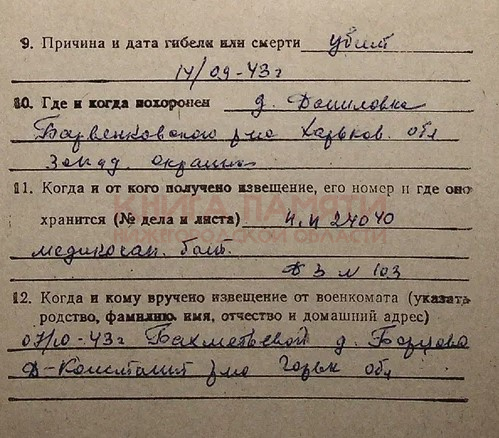 9. Причина и дата гибели или смерти убит
14/09-43г
10. Где и когда похоронен д. Даниловка
Барвенковского р-на Харьков. обл
запад. окраина
11. Когда и от кого получено извещение, его номер и где оно
КНИГА ПАМЯТИ
хранится (№ дела и листа) 4.И 24040
НИЖЕГОРОДСКОЙ ОБЛАСТИ
медикосан. бат.
Д 3 л 103
12. Когда и кому вручено извещение от военкомата (указать
родство, фамилию, имя, отчество и домашний адрес)
07/10-43г Бахметьевой д.
Д-Констант р-на Горьк обл